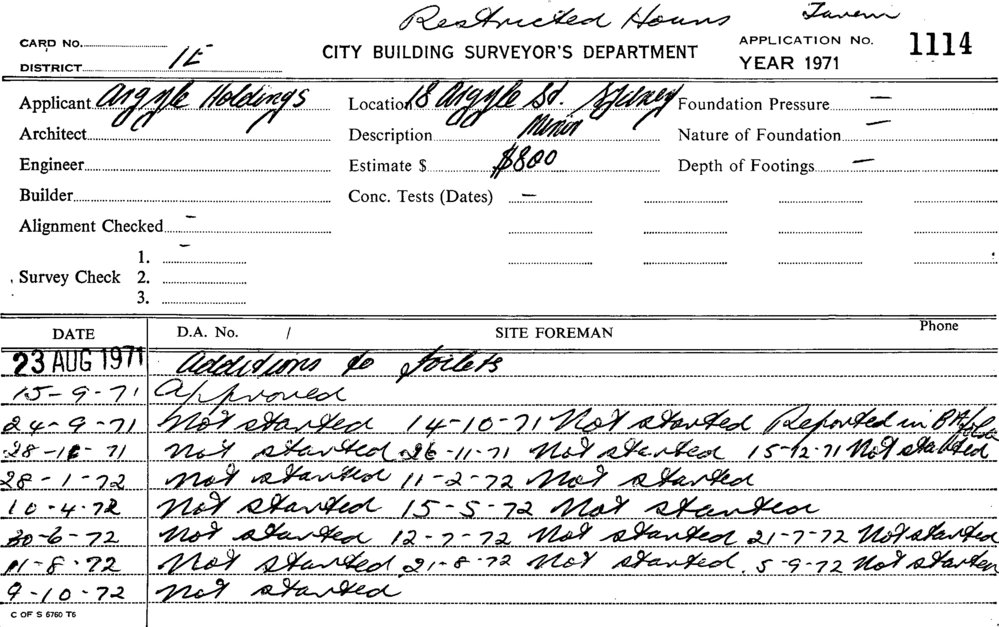 Restricted Hours Tavern
CARD No. CITY BUILDING SURVEYOR'S DEPARTMENT APPLICATION No. 1114
DISTRICT 1E YEAR 1971
Applicant Argyle Holdings Location 18 Argyle St. Sydney Foundation Pressure —
Architect Description Minor Nature of Foundation —
Engineer Estimate $ $800 Depth of Footings —
Builder Conc. Tests (Dates) —
Alignment Checked –
1. –
Survey Check 2.
3.
DATE D.A. No. / SITE FOREMAN Phone
23 AUG 1971 Additions to toilets
15-9-71 Approved
24-9-71 Not started 14-10-71 Not started Reported in
28-10-71 Not started 26-11-71 Not started 15-12-71 Not started
28-1-72 Not started 11-2-72 Not started
10-4-72 Not started 15-5-72 Not started
30-6-72 Not started 12-7-72 Not started 21-7-72 Not started
11-8-72 Not started 21-8-72 Not started. 5-9-72 Not started
9-10-72 Not started
C OF S 5760 T6